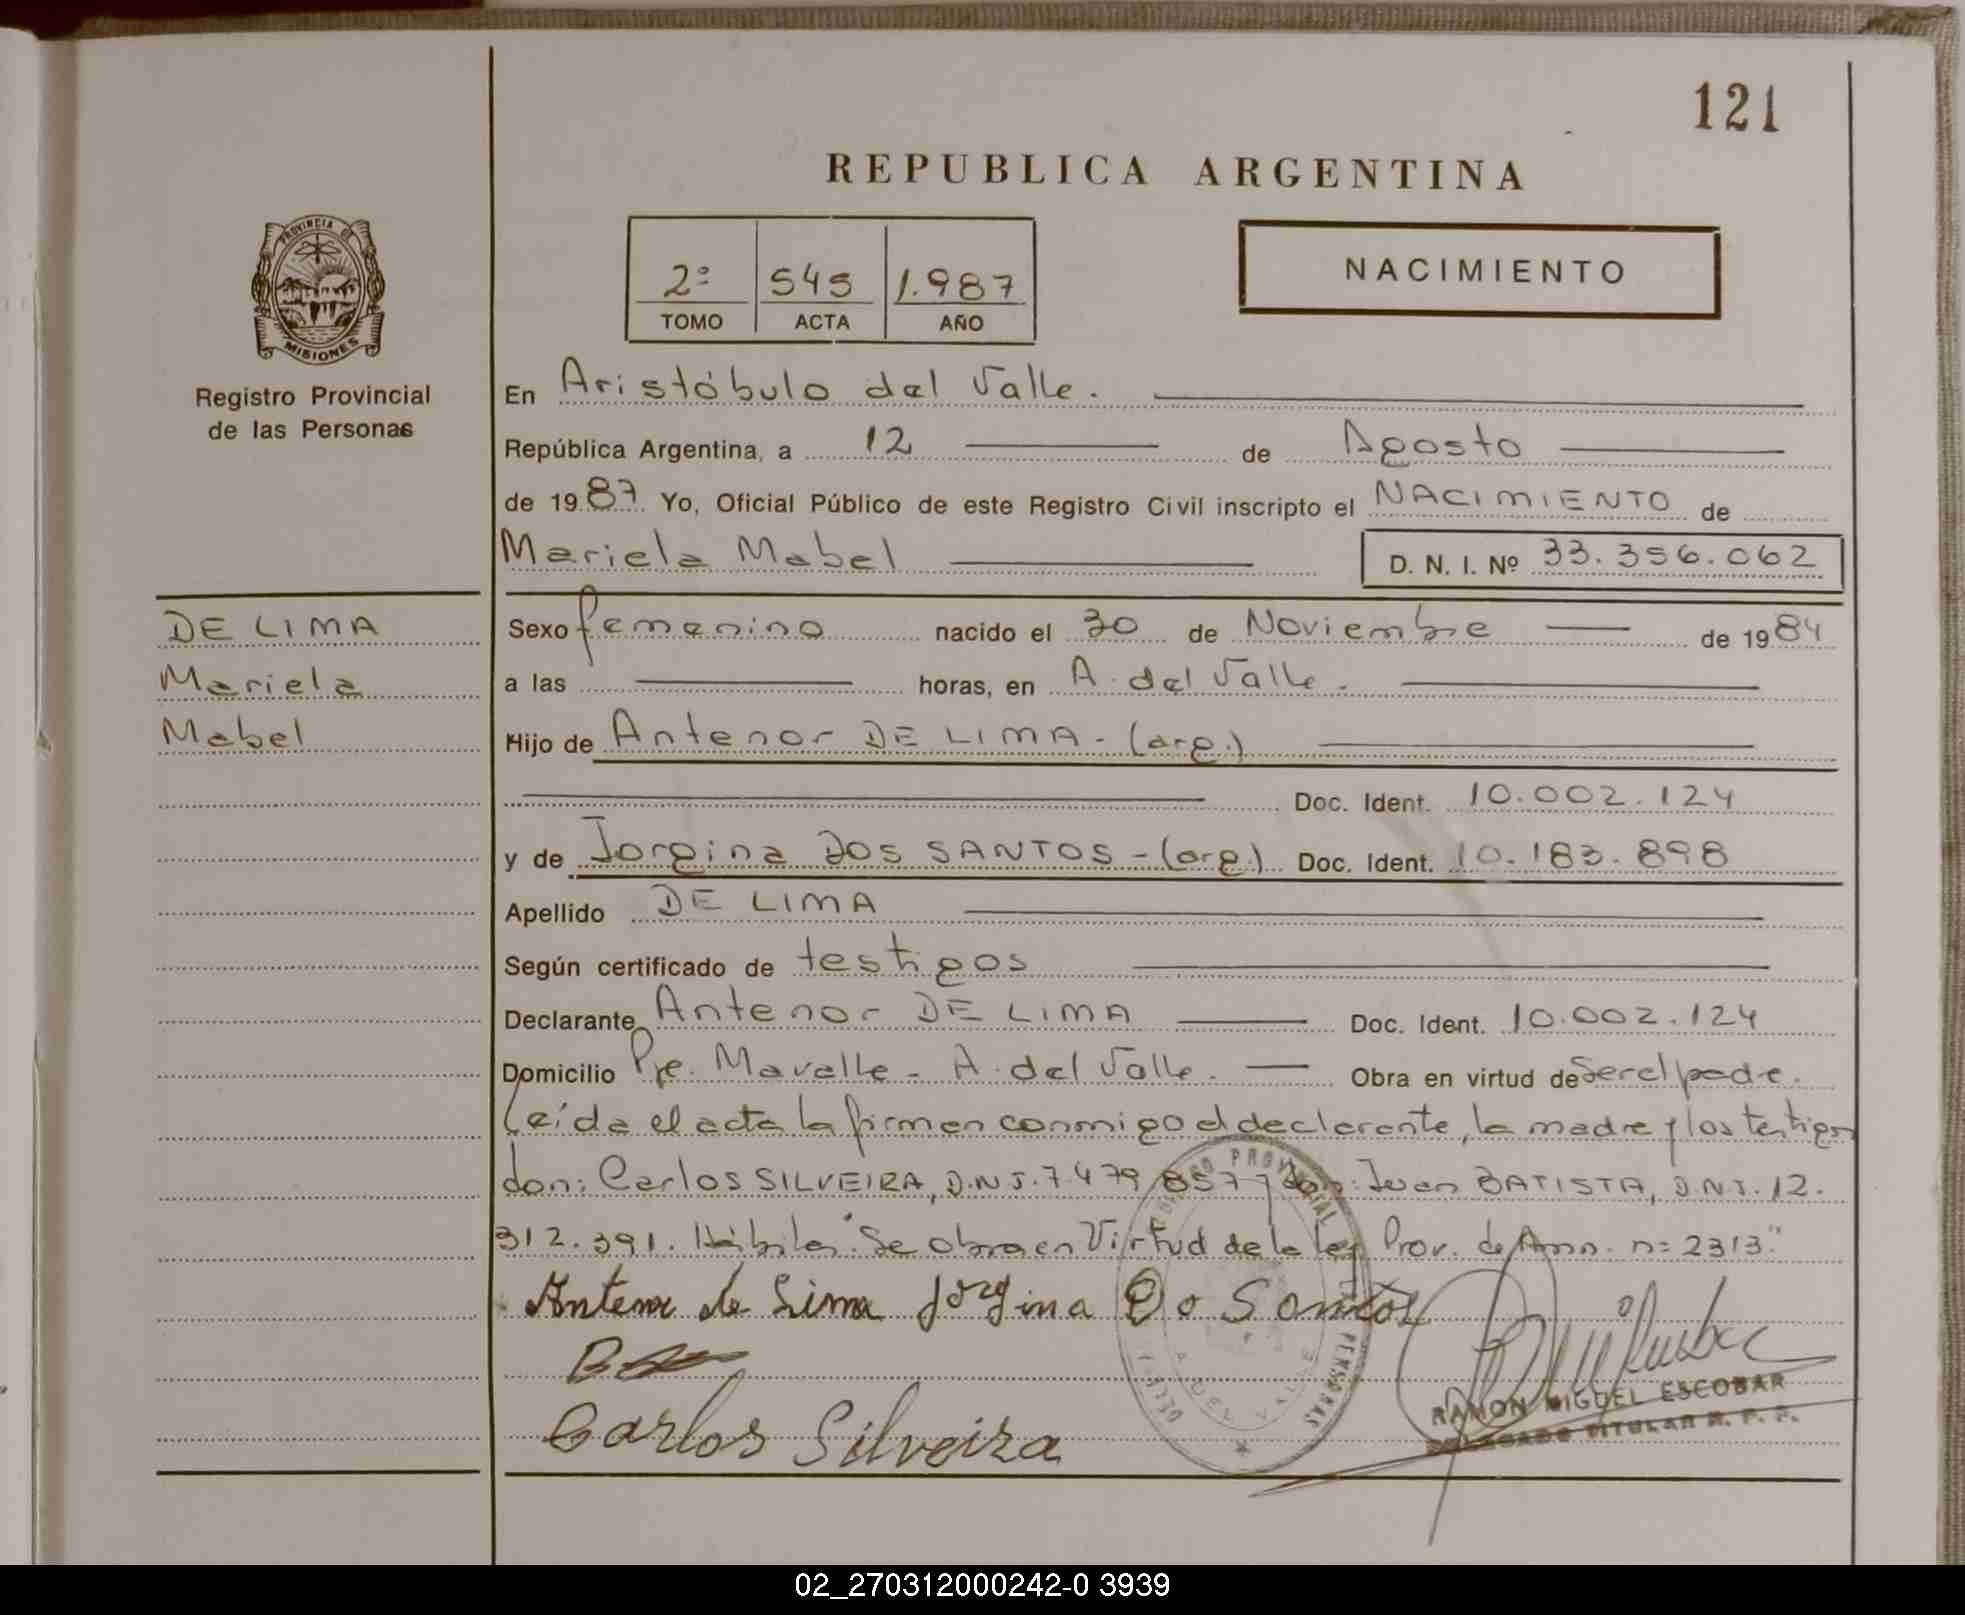 121
REPUBLICA ARGENTINA
2º 545 1.987
TOMO ACTA AÑO
NACIMIENTO
PROVINCIA DE
MISIONES
Registro Provincial
de las Personas
En Aristóbulo del Valle.
República Argentina, a 12 de Agosto
de 1987 Yo, Oficial Público de este Registro Civil inscripto el NACIMIENTO de
Mariela Mabel D. N. I. Nº 33.356.062
DE LIMA
Mariela
Mabel
Sexo femenino nacido el 30 de Noviembre de 1984
a las horas, en A. del Valle.
Hijo de Antenor DE LIMA - (arg.)
Doc. Ident. 10.002.124
y de Jorgina DOS SANTOS - (arg.) Doc. Ident. 10.183.898
Apellido DE LIMA
Según certificado de testigos
Declarante Antenor DE LIMA Doc. Ident. 10.002.124
Domicilio Pje. Mavalle - A. del Valle. Obra en virtud de Ser el padre.
Leída el acta la firman conmigo el declarante, la madre y los testigos
don: Carlos SILVEIRA, D.N.I. 7.479.857 y don: Juan BATISTA, D.N.I. 12.
312.391. Hábiles. "Se obra en Virtud de la Ley Prov. de Amn. nº 2313."
Antenor de Lima Jorgina Do Santos
Carlos Silveira
RAMON MIGUEL ESCOBAR
DELEGADO TITULAR R. P. P.
A. DEL VALLE
02_270312000242-0 3939